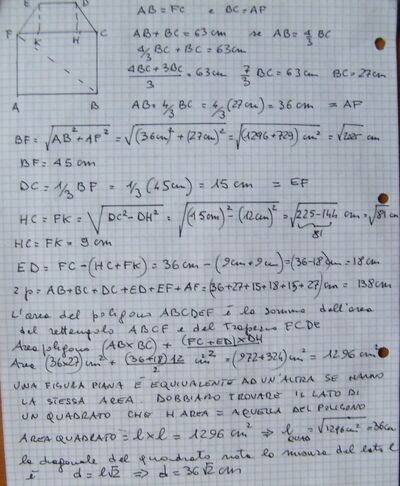 E D
F K H C
A B
AB = FC e BC = AF
AB + BC = 63 cm se AB = 4/3 BC
4/3 BC + BC = 63 cm
4BC + 3BC / 3 = 63 cm 7/3 BC = 63 cm BC = 27 cm
AB = 4/3 BC = 4/3 (27 cm) = 36 cm = AF
BF = √AB² + AF² = √(36 cm)² + (27 cm)² = √(1296 + 729) cm² = √2025 cm
BF = 45 cm
DC = 1/3 BF = 1/3 (45 cm) = 15 cm = EF
HC = FK = √DC² - DH² = √(15 cm)² - (12 cm)² = √225 - 144 cm = √81 cm
81
HC = FK = 9 cm
ED = FC - (HC + FK) = 36 cm - (9 cm + 9 cm) = (36 - 18) cm = 18 cm
2p = AB + BC + DC + ED + EF + AF = (36 + 27 + 15 + 18 + 15 + 27) cm = 138 cm
L'area del poligono ABCDEF è la somma dell'area
del rettangolo ABCF e del trapezio FCDE
Area poligono (AB × BC) + (FC + ED) × DH / 2
Area (36 × 27) cm² + (36 + 18) 12 / 2 cm² = (972 + 324) cm² = 1296 cm²
UNA FIGURA PIANA È EQUIVALENTE AD UN'ALTRA SE HANNO
LA STESSA AREA. DOBBIAMO TROVARE IL LATO DI
UN QUADRATO CHE HA AREA = A QUELLA DEL POLIGONO
AREA QUADRATO = l × l = 1296 cm² ⇒ l QUAD = √1296 cm² = 36 cm
la diagonale del quadrato nota la misura del lato l
è d = l√2 ⇒ d = 36√2 cm